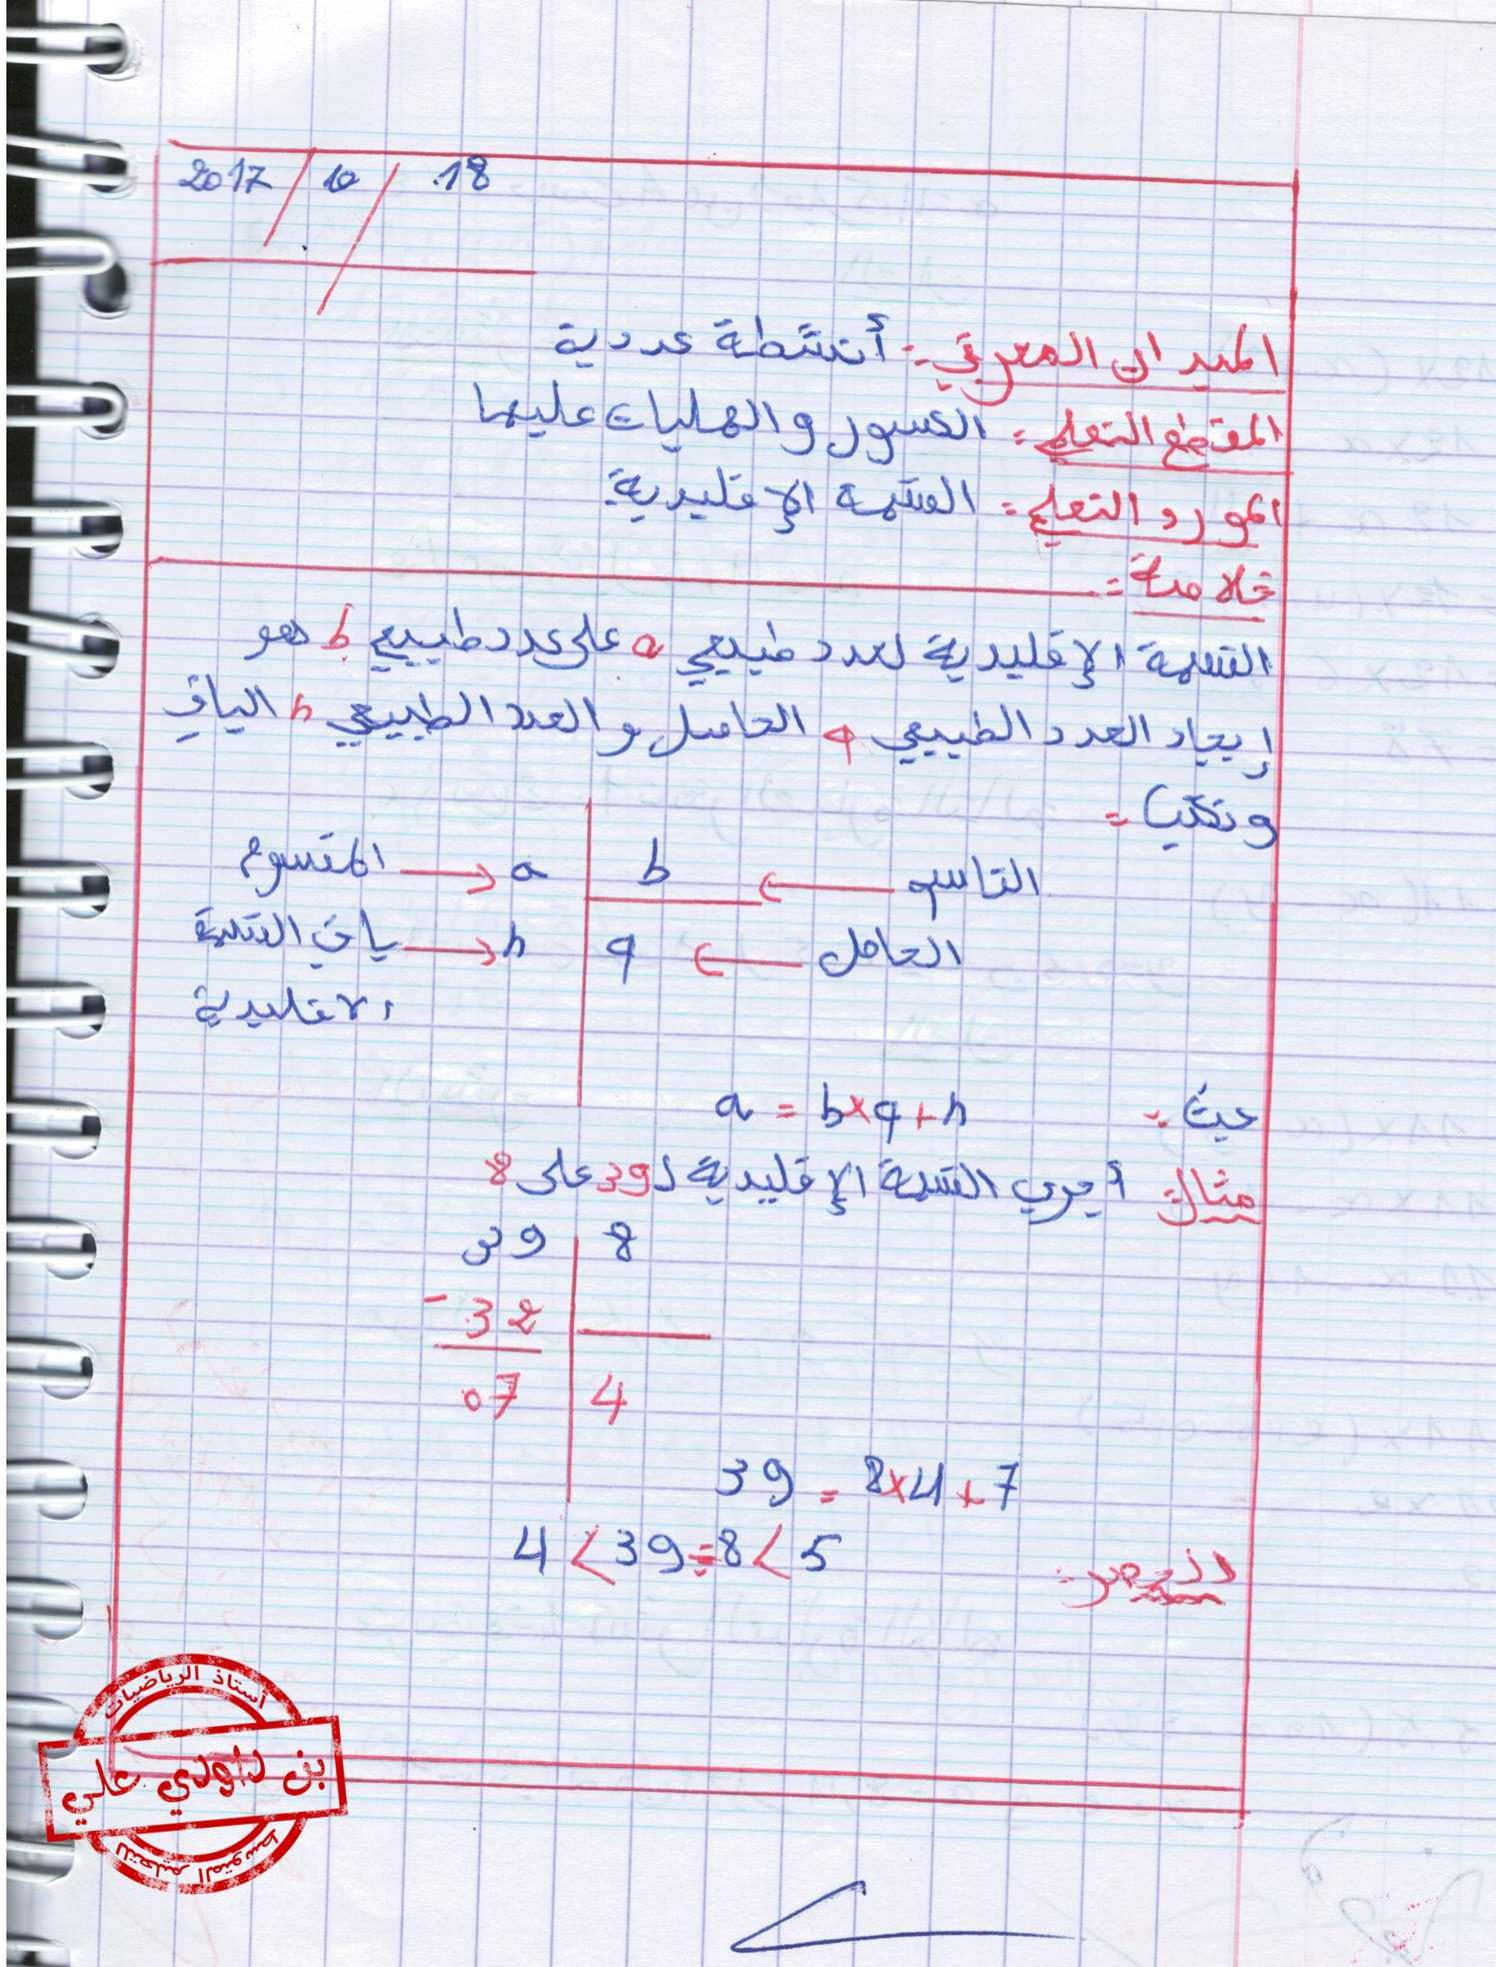 2017 / 10 / 18
الميدان المعرفي: أنشطة عددية
المقطع التعلمي: الكسور والعمليات عليها
المورد التعلمي: القسمة الإقليدية
خلاصة:
القسمة الإقليدية لعدد طبيعي a على عدد طبيعي b هو
إيجاد العدد الطبيعي q الحاصل والعدد الطبيعي r الباقي
ونكتب:
المقسوم → a | b ← القاسم
باقي القسمة → r | q ← الحاصل
الاقليدية
حيث: a = b×q+r
مثال: أجري القسمة الإقليدية لـ 39 على 8
39 | 8
- 32
07 | 4
39 = 8×4+7
الحصر: 4 < 39÷8 < 5
أستاذ الرياضيات
بن داودي علي
للتعليم المتوسط